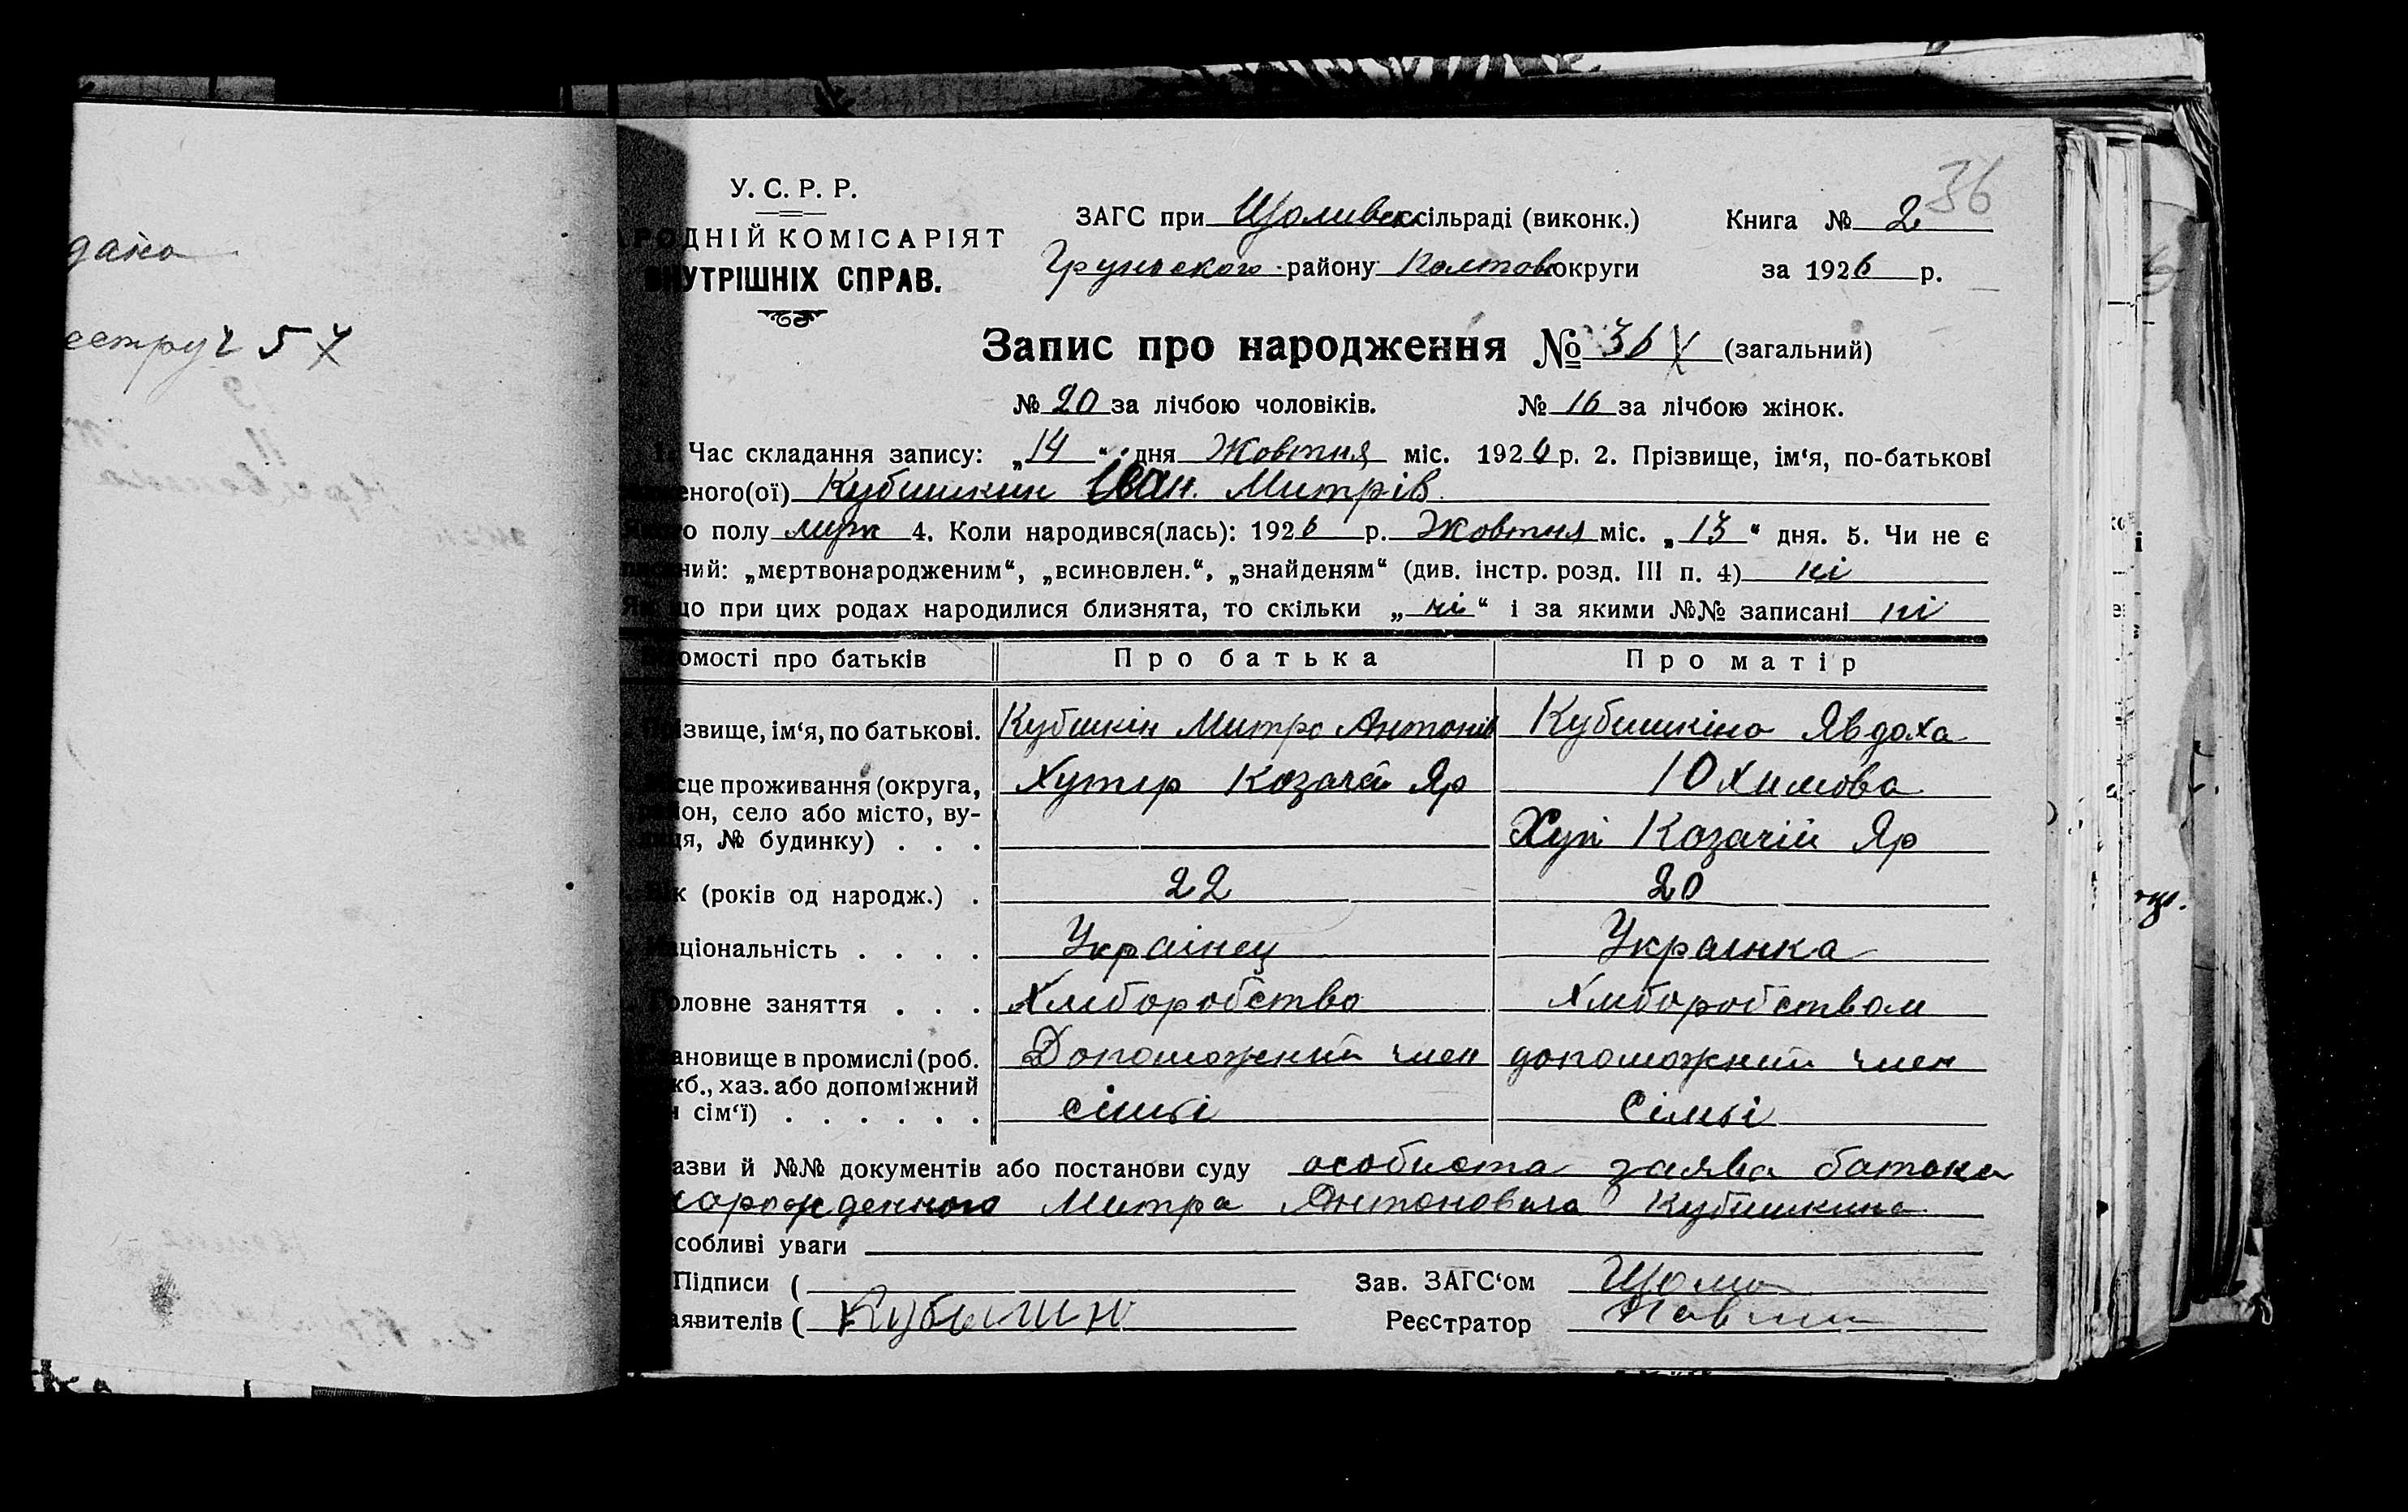 дано
У. С. Р. Р.
РОДНІЙ КОМІСАРІЯТ
ВНУТРІШНІХ СПРАВ.
36
ЗАГС при сільраді (виконк.) Книга № 2
Грунського району Полтав округи за 1926 р.
Запис про народження № 36 (загальний)
№ 20 за лічбою чоловіків. № 16 за лічбою жінок.
1. Час складання запису: „14“ дня Жовтня міс. 1926 р. 2. Прізвище, ім‘я, по-батькові
еного(ої) Кубишкин Іван. Митрів
полу муж 4. Коли народився(лась): 1926 р. Жовтня міс. „13“ дня. 5. Чи не є
ний: „мертвонародженим“, „всиновлен.“, „знайденям“ (див. інстр. розд. III п. 4) ні
Якщо при цих родах народилися близнята, то скільки „ні“ і за якими №№ записані ні
омості про батьків Про батька Про матір
Прізвище, ім‘я, по батькові. Кубишкін Митро Антонів Кубишкіна Явдоха
сце проживання (округа, Хутір Козачій Яр Юхимова
он, село або місто, ву-
ця, № будинку) . . . Хут Козачій Яр
Вік (років од народж.) . 22 20
ціональність . . . . Українец Украінка
оловне заняття . . . Хліборобство Хліборобством
ановище в промислі (роб. Допоможний член допоможний член
жб., хаз. або допоміжний
сім‘ї) . . . . . . сімьі сімьі
азви й №№ документів або постанови суду особиста заява батька
народженного Митра Антоновича Кубишкина
собливі уваги
Підписи ( Зав. ЗАГС‘ом
аявителів ( Реєстратор